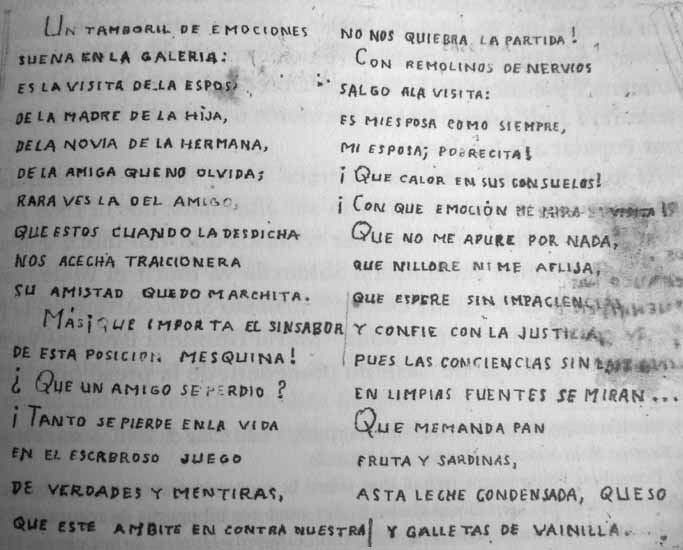 UN TAMBORIL DE EMOCIONES
SUENA EN LA GALERIA:
ES LA VISITA DE LA ESPOSA
DE LA MADRE DE LA HIJA,
DE LA NOVIA DE LA HERMANA,
DE LA AMIGA QUE NO OLVIDA;
RARA VES LA DEL AMIGO,
QUE ESTOS CUANDO LA DESDICHA
NOS ACECHA TRAICIONERA
SU AMISTAD QUEDO MARCHITA.
MÁS¡ QUE IMPORTA EL SINSABOR
DE ESTA POSICION MESQUINA!
¿ QUE UN AMIGO SE PERDIO ?
¡ TANTO SE PIERDE EN LA VIDA
EN EL ESCABROSO JUEGO
DE VERDADES Y MENTIRAS,
QUE ESTE AMBITE EN CONTRA NUESTRA
NO NOS QUIEBRA LA PARTIDA!
CON REMOLINOS DE NERVIOS
SALGO ALA VISITA:
ES MI ESPOSA COMO SIEMPRE,
MI ESPOSA; POBRECITA!
¡ QUE CALOR EN SUS CONSUELOS!
¡ CON QUE EMOCIÓN ME MIRA
QUE NO ME APURE POR NADA,
QUE NI LLORE NI ME AFLIJA,
QUE ESPERE SIN IMPACIENCIA
Y CONFIE CON LA JUSTICIA,
PUES LAS CONCIENCIAS SIN
EN LIMPIAS FUENTES SE MIRAN...
QUE ME MANDA PAN
FRUTA Y SARDINAS,
ASTA LECHE CONDENSADA, QUESO
Y GALLETAS DE VAINILLA.